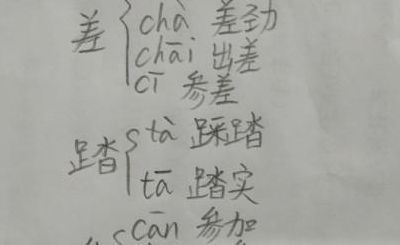 差 chà 差劲
chāi 出差
cī 参差
踏 tà 踩踏
tā 踏实
cān 参加